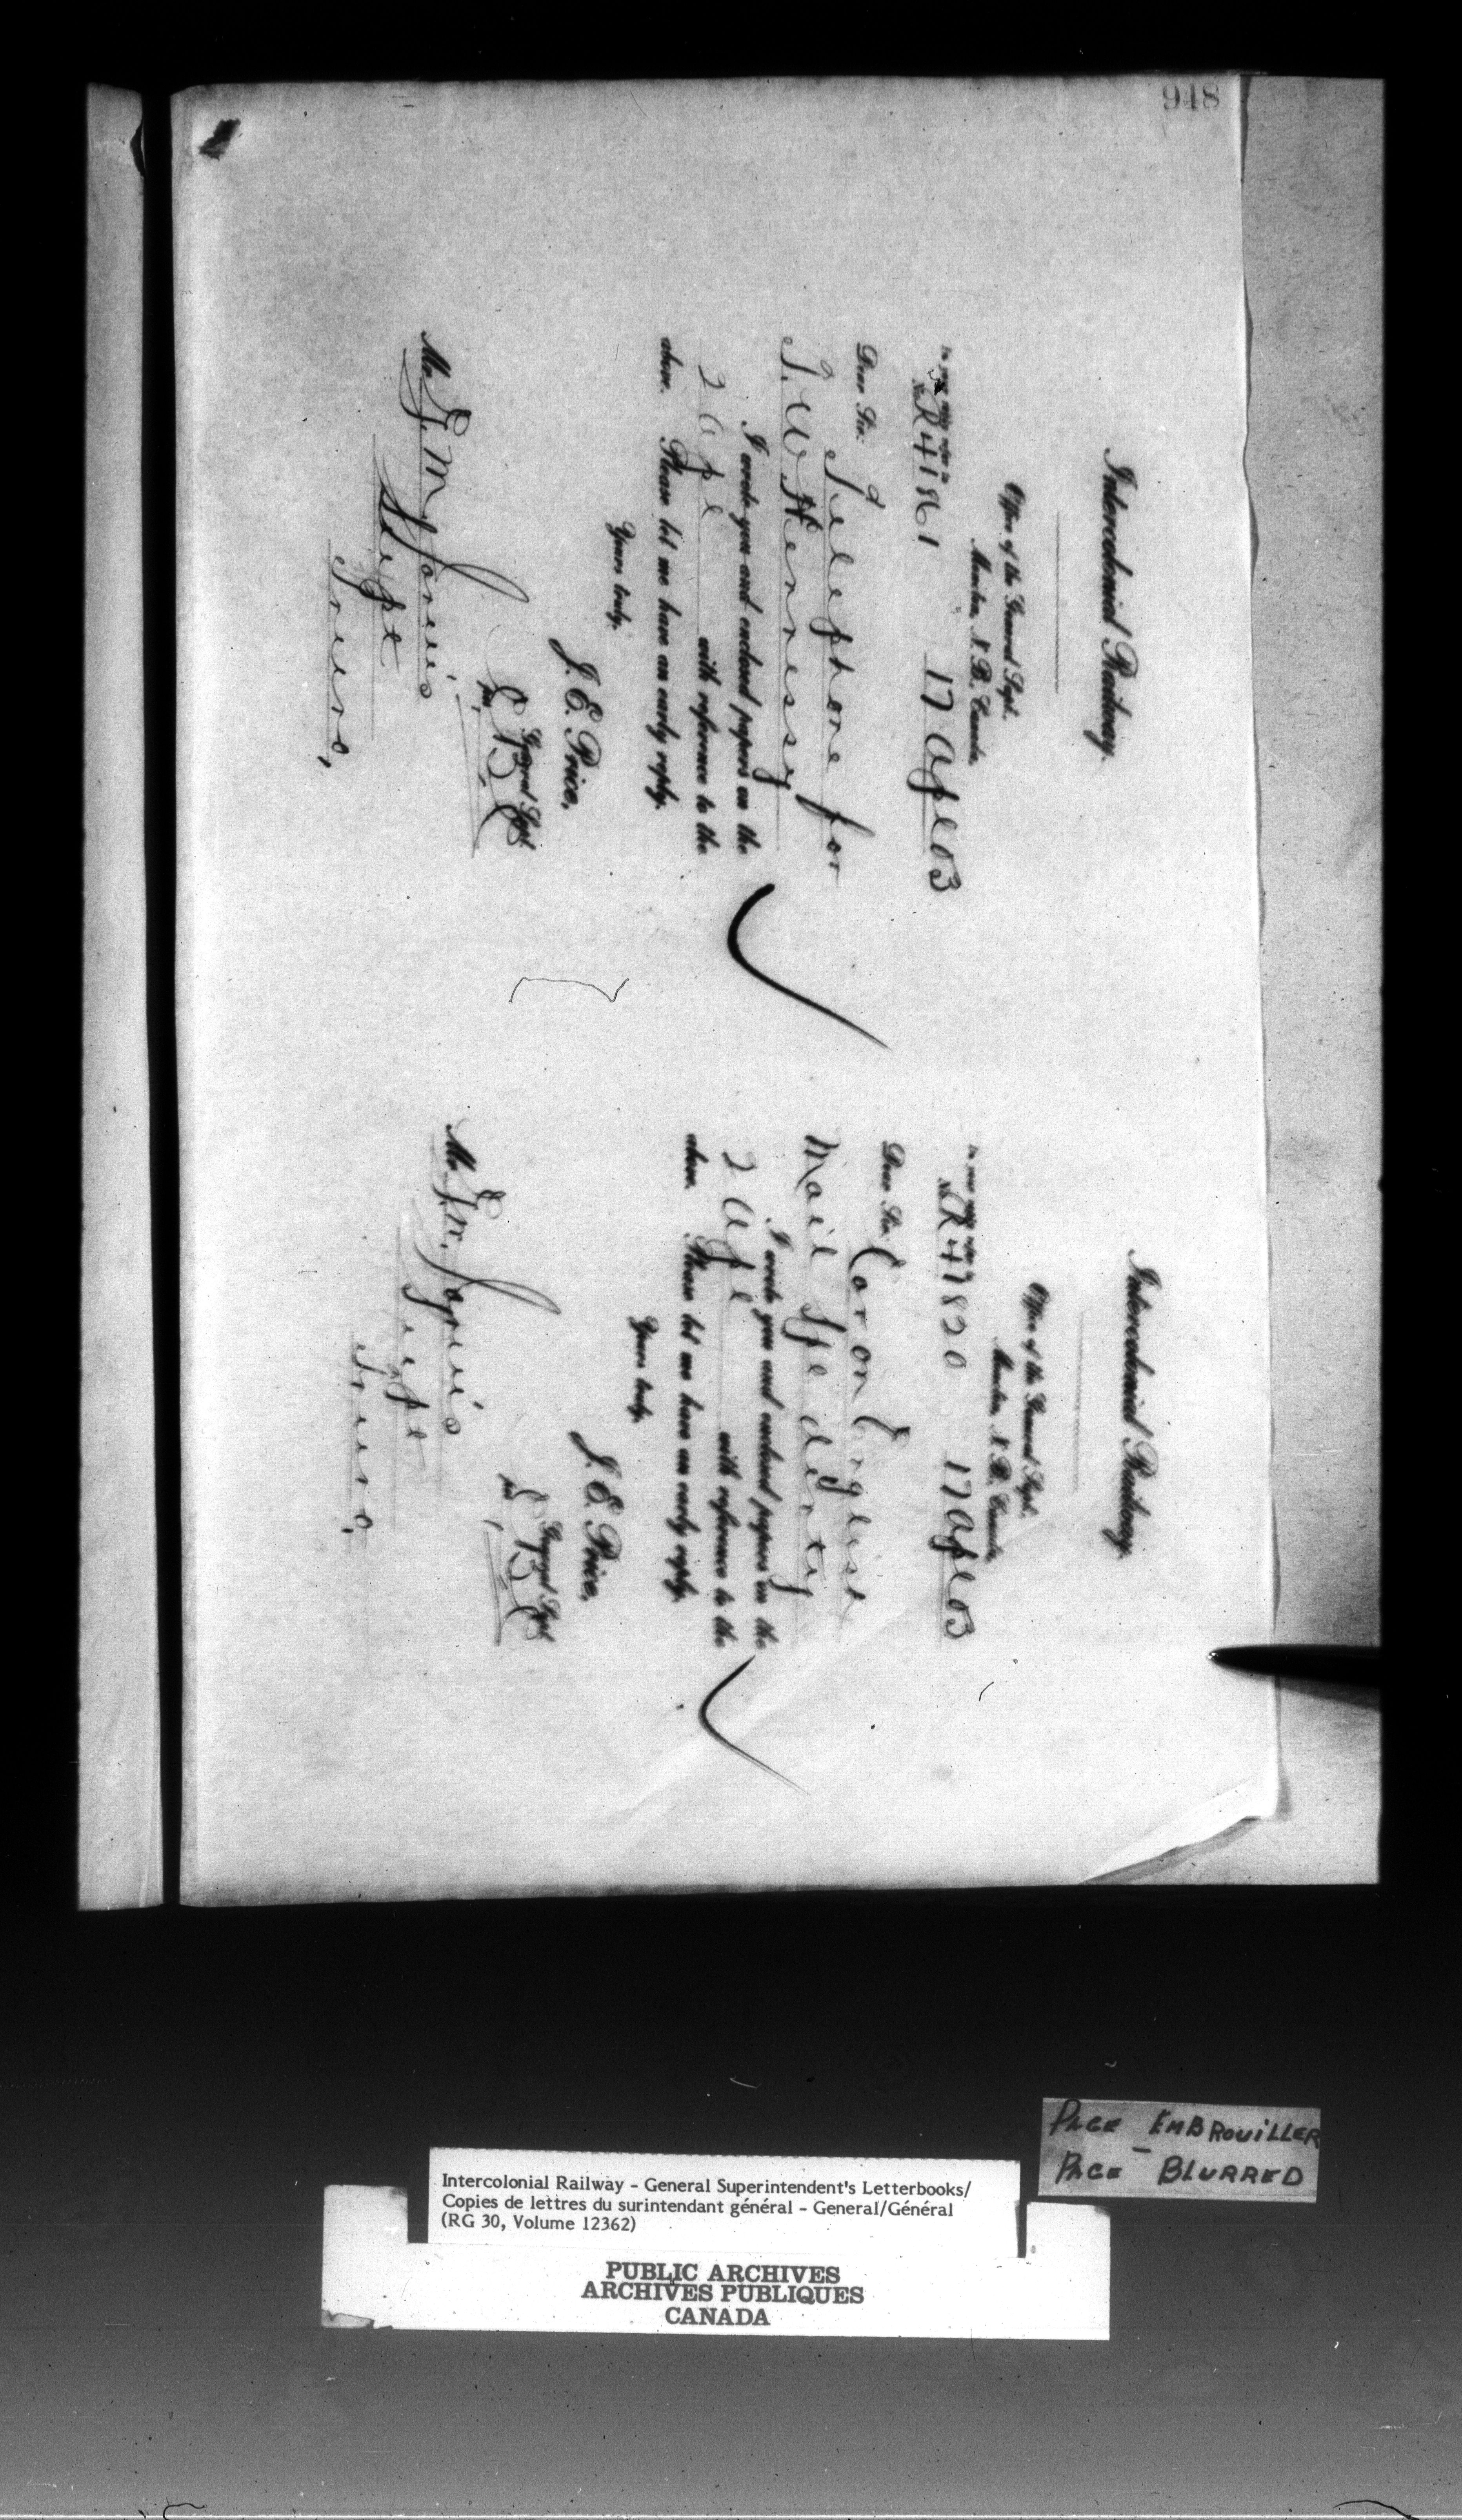 948
Intercolonial Railway.
Office of the General Supt.
Moncton, N. B. Canada,
In your reply refer to
No. R 41861 17 Apl 03
Dear Sir:
Telephone for
J. W Hennessy
I wrote you and enclosed papers on the
2 Apl with reference to the
above. Please let me have an early reply.
Yours truly,
J. E. Price,
General Supt.
Per,
Mr.
Supt
Truro,
Intercolonial Railway.
Office of the General Supt.
Moncton, N. B. Canada,
In your reply refer to
No. R 47820 17 Apl 03
Dear Sir:
Car on English
Mail Spe
I wrote you and enclosed papers on the
2 Apl with reference to the
above. Please let me have an early reply.
Yours truly,
J. E. Price,
General Supt.
Per,
Mr.
Supt
Truro,
PAGE EMBROUILLER
PAGE - BLURRED
Intercolonial Railway - General Superintendent's Letterbooks/
Copies de lettres du surintendant général - General/Général
(RG 30, Volume 12362)
PUBLIC ARCHIVES
ARCHIVES PUBLIQUES
CANADA